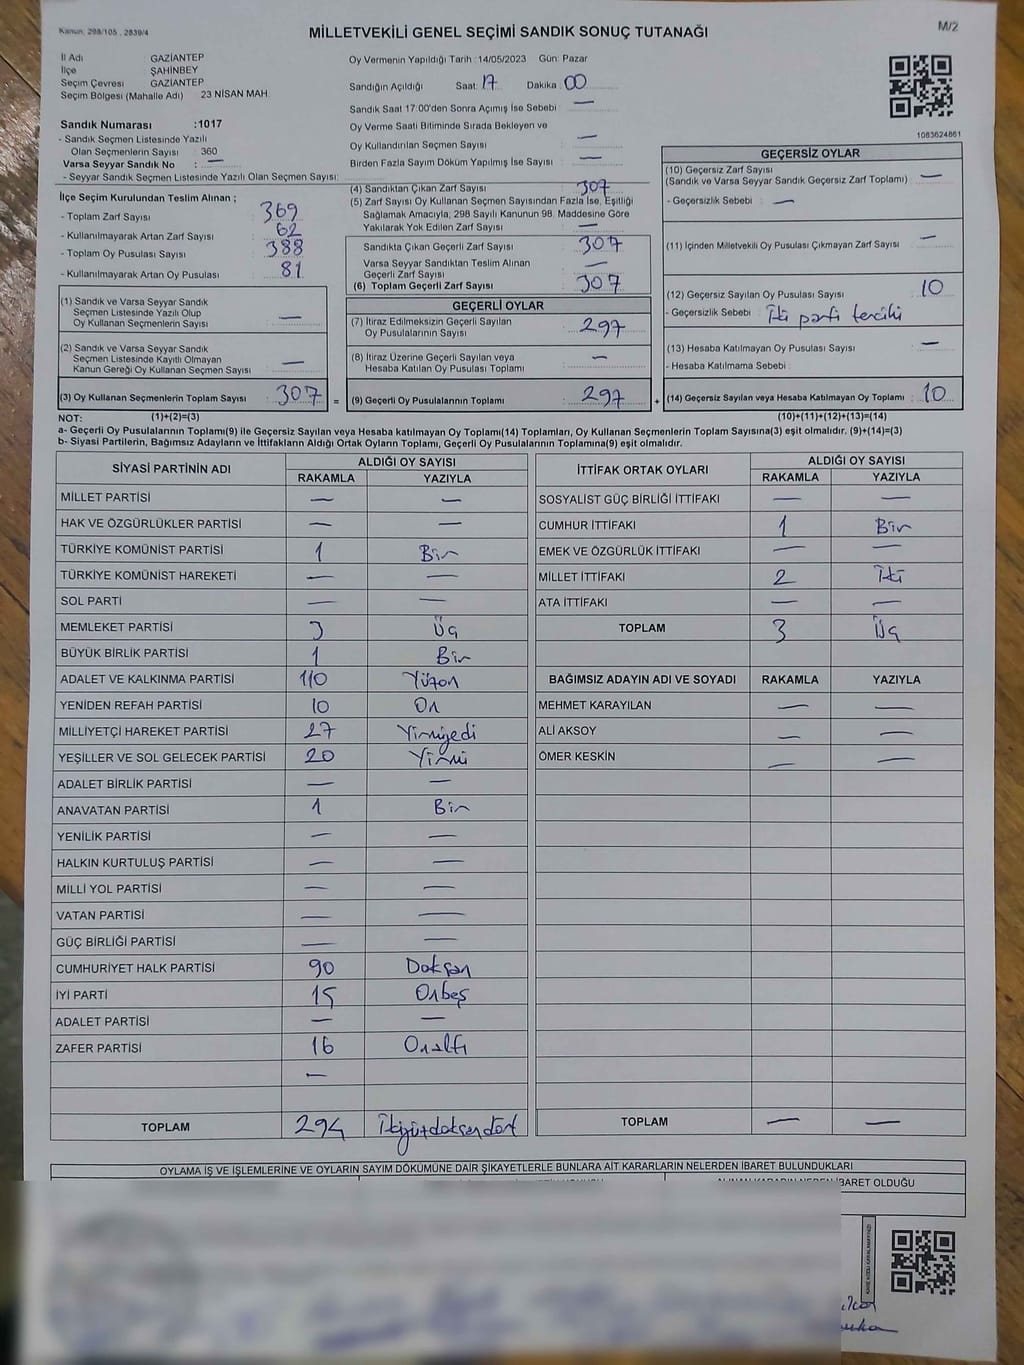 Kanun: 298/105 , 2839/4
MİLLETVEKİLİ GENEL SEÇİMİ SANDIK SONUÇ TUTANAĞI
M/2
İl Adı GAZİANTEP
İlçe ŞAHİNBEY
Seçim Çevresi GAZİANTEP
Seçim Bölgesi (Mahalle Adı) 23 NİSAN MAH.
Sandık Numarası :1017
- Sandık Seçmen Listesinde Yazılı
Olan Seçmenlerin Sayısı : 360
Varsa Seyyar Sandık No : —
- Seyyar Sandık Seçmen Listesinde Yazılı Olan Seçmen Sayısı:
Oy Vermenin Yapıldığı Tarih : 14/05/2023 Gün: Pazar
Sandığın Açıldığı Saat: 17 Dakika : 00
Sandık Saat 17:00'den Sonra Açımış İse Sebebi : —
Oy Verme Saati Bitiminde Sırada Bekleyen ve
Oy Kullandırılan Seçmen Sayısı : —
Birden Fazla Sayım Döküm Yapılmış İse Sayısı : —
1083624861
İlçe Seçim Kurulundan Teslim Alınan ;
- Toplam Zarf Sayısı : 369
- Kullanılmayarak Artan Zarf Sayısı : 62
- Toplam Oy Pusulası Sayısı : 388
- Kullanılmayarak Artan Oy Pusulası : 81
(1) Sandık ve Varsa Seyyar Sandık
Seçmen Listesinde Yazılı Olup
Oy Kullanan Seçmenlerin Sayısı : —
(2) Sandık ve Varsa Seyyar Sandık
Seçmen Listesinde Kayıtlı Olmayan
Kanun Gereği Oy Kullanan Seçmen Sayısı : —
(3) Oy Kullanan Seçmenlerin Toplam Sayısı : 307 =
(4) Sandıktan Çıkan Zarf Sayısı : 307
(5) Zarf Sayısı Oy Kullanan Seçmen Sayısından Fazla İse, Eşitliği
Sağlamak Amacıyla, 298 Sayılı Kanunun 98. Maddesine Göre
Yakılarak Yok Edilen Zarf Sayısı : —
Sandıkta Çıkan Geçerli Zarf Sayısı : 307
Varsa Seyyar Sandıktan Teslim Alınan
Geçerli Zarf Sayısı : —
(6) Toplam Geçerli Zarf Sayısı : 307
GEÇERLİ OYLAR
(7) İtiraz Edilmeksizin Geçerli Sayılan
Oy Pusulalarının Sayısı : 297
(8) İtiraz Üzerine Geçerli Sayılan veya
Hesaba Katılan Oy Pusulası Toplamı : —
(9) Geçerli Oy Pusulalarının Toplamı : 297 +
GEÇERSİZ OYLAR
(10) Geçersiz Zarf Sayısı
(Sandık ve Varsa Seyyar Sandık Geçersiz Zarf Toplamı) : —
- Geçersizlik Sebebi : —
(11) İçinden Milletvekili Oy Pusulası Çıkmayan Zarf Sayısı : —
(12) Geçersiz Sayılan Oy Pusulası Sayısı : 10
- Geçersizlik Sebebi : İki parti tercihi
(13) Hesaba Katılmayan Oy Pusulası Sayısı : —
- Hesaba Katılmama Sebebi :
(14) Geçersiz Sayılan veya Hesaba Katılmayan Oy Toplamı : 10
NOT: (1)+(2)=(3) (10)+(11)+(12)+(13)=(14)
a- Geçerli Oy Pusulalarının Toplamı(9) ile Geçersiz Sayılan veya Hesaba katılmayan Oy Toplamı(14) Toplamları, Oy Kullanan Seçmenlerin Toplam Sayısına(3) eşit olmalıdır. (9)+(14)=(3)
b- Siyasi Partilerin, Bağımsız Adayların ve İttifakların Aldığı Ortak Oyların Toplamı, Geçerli Oy Pusulalarının Toplamına(9) eşit olmalıdır.
SİYASİ PARTİNİN ADI ALDIĞI OY SAYISI
RAKAMLA YAZIYLA
MİLLET PARTİSİ — —
HAK VE ÖZGÜRLÜKLER PARTİSİ — —
TÜRKİYE KOMÜNİST PARTİSİ 1 Bir
TÜRKİYE KOMÜNİST HAREKETİ — —
SOL PARTİ — —
MEMLEKET PARTİSİ 3 Üç
BÜYÜK BİRLİK PARTİSİ 1 Bir
ADALET VE KALKINMA PARTİSİ 110 Yüzon
YENİDEN REFAH PARTİSİ 10 On
MİLLİYETÇİ HAREKET PARTİSİ 27 Yirmiyedi
YEŞİLLER VE SOL GELECEK PARTİSİ 20 Yirmi
ADALET BİRLİK PARTİSİ — —
ANAVATAN PARTİSİ 1 Bir
YENİLİK PARTİSİ — —
HALKIN KURTULUŞ PARTİSİ — —
MİLLİ YOL PARTİSİ — —
VATAN PARTİSİ — —
GÜÇ BİRLİĞİ PARTİSİ — —
CUMHURİYET HALK PARTİSİ 90 Doksan
İYİ PARTİ 15 Onbeş
ADALET PARTİSİ — —
ZAFER PARTİSİ 16 Onaltı
—
TOPLAM 294 İkiyüzdoksandört
İTTİFAK ORTAK OYLARI ALDIĞI OY SAYISI
RAKAMLA YAZIYLA
SOSYALİST GÜÇ BİRLİĞİ İTTİFAKI — —
CUMHUR İTTİFAKI 1 Bir
EMEK VE ÖZGÜRLÜK İTTİFAKI — —
MİLLET İTTİFAKI 2 İki
ATA İTTİFAKI — —
TOPLAM 3 Üç
BAĞIMSIZ ADAYIN ADI VE SOYADI RAKAMLA YAZIYLA
MEHMET KARAYILAN — —
ALİ AKSOY — —
ÖMER KESKİN — —
TOPLAM — —
OYLAMA İŞ VE İŞLEMLERİNE VE OYLARIN SAYIM DÖKÜMÜNE DAİR ŞİKAYETLERLE BUNLARA AİT KARARLARIN NELERDEN İBARET BULUNDUKLARI
İBARET OLDUĞU